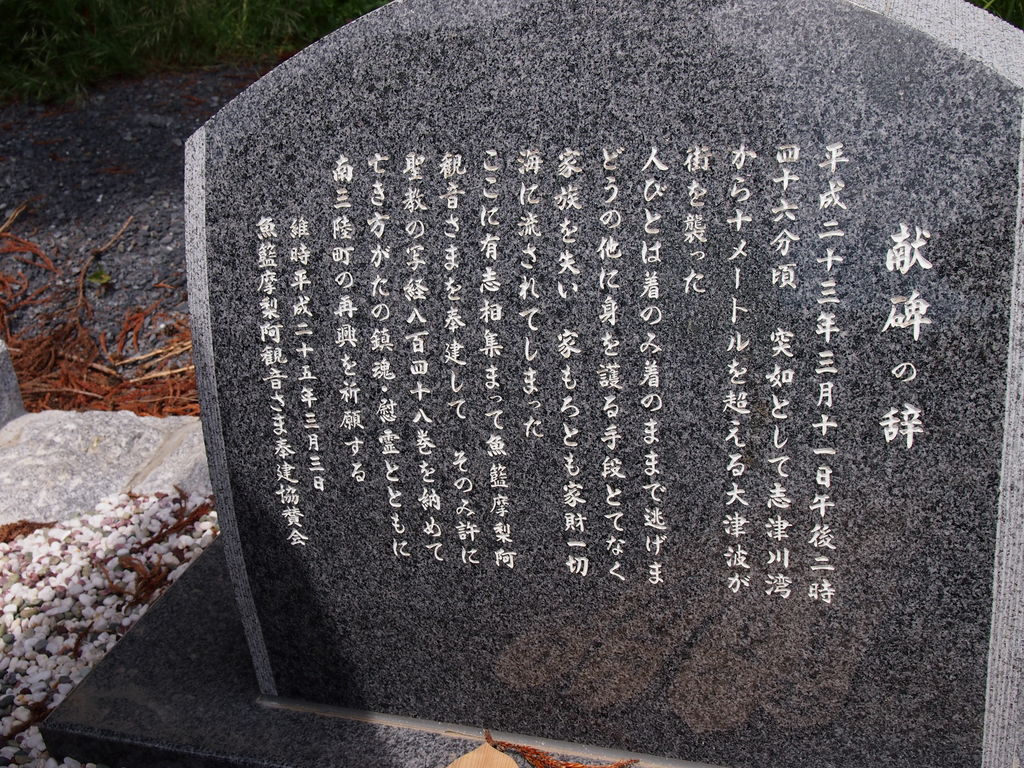 献碑の辞
平成二十三年三月十一日午後二時
四十六分頃　突如として志津川湾
から十メートルを超える大津波が
街を襲った
人びとは着のみ着のままで逃げま
どうの他に身を護る手段とてなく
家族を失い　家もろとも家財一切
海に流されてしまった
ここに有志相集まって魚籃摩梨阿
観音さまを奉建して　そのみ許に
聖教の写経八百四十八巻を納めて
亡き方がたの鎮魂・慰霊とともに
南三陸町の再興を祈願する
維時平成二十五年三月三日
魚籃摩梨阿観音さま奉建協賛会